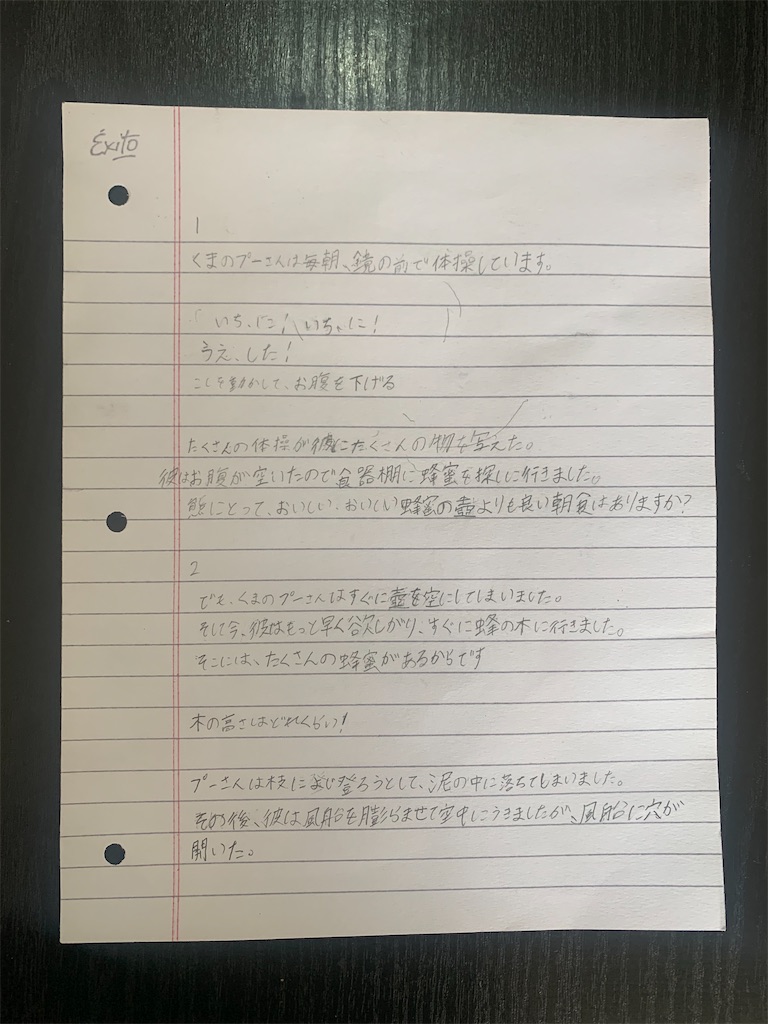 Éxito
1
くまのプーさんは毎朝、鏡の前で体操しています。
「いち、に！いち、に！
うえ、した！
こしを動かして、お腹を下げる
たくさんの体操が彼にたくさんの物を写えた。
彼はお腹が空いたので食器棚に蜂蜜を探しに行きました。
熊にとって、おいしい、おいしい蜂蜜の壺よりも良い朝食はありますか？
2
でも、くまのプーさんはすぐに壺を空にしてしまいました。
そして今、彼はもっと早く欲しがり、すぐに蜂の木に行きました。
そこには、たくさんの蜂蜜があるからです
木の高さはどれくらい！
プーさんは枝によじ登ろうとして、泥の中に落ちてしまいました。
その後、彼は風船を膨らませて空中にうきましたが、風船に穴が
開いた。